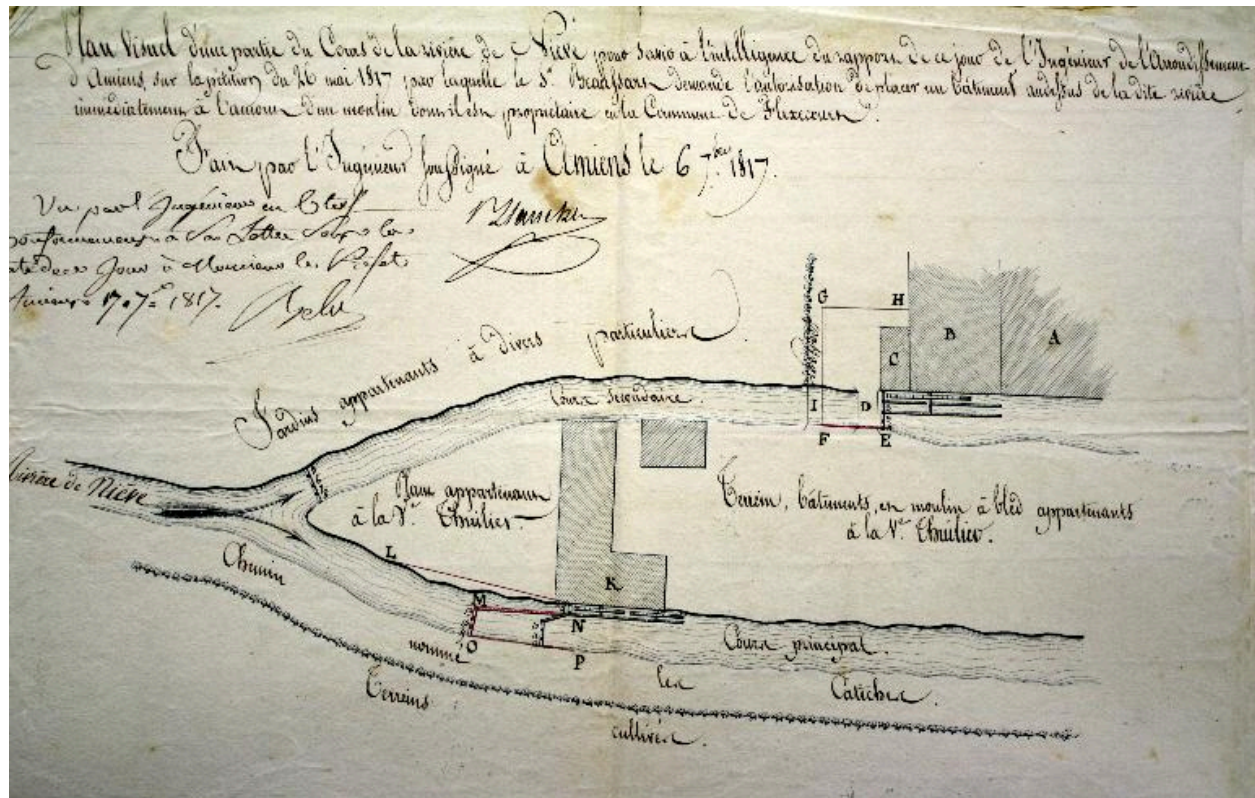 Plan Visuel d'une partie du Cours de la rivière de Nièvre pour servir à l'intelligence du rapport de ce jour de l'Ingénieur de l'Arrondissement
d'Amiens, sur la pétition du 26 mai 1817 par laquelle le Sr. Beaussart demande l'autorisation de placer un bâtiment au dessus de la dite rivière
immédiatement à l'amont d'un moulin dont il est propriétaire en la Commune de Flixecourt.
Fait par l'Ingénieur soussigné à Amiens le 6 7bre 1817.
Vu par l'Ingénieur en Chef
conformément à sa Lettre
de ce Jour à Monsieur le Préfet
Amiens 7bre 1817.
G H
B A
C
Jardins appartenants à divers particuliers
Cours secondaire.
I D
F E
Rivière de Nièvre
appartenant
à la Ve. Thuilier.
Terrein, bâtiments, et moulin à bled appartenants
à la Ve. Thuilier.
L
K
Chemin
M
N
nommé O
P
Cours principal.
les Catiches
Terreins
cultivés.